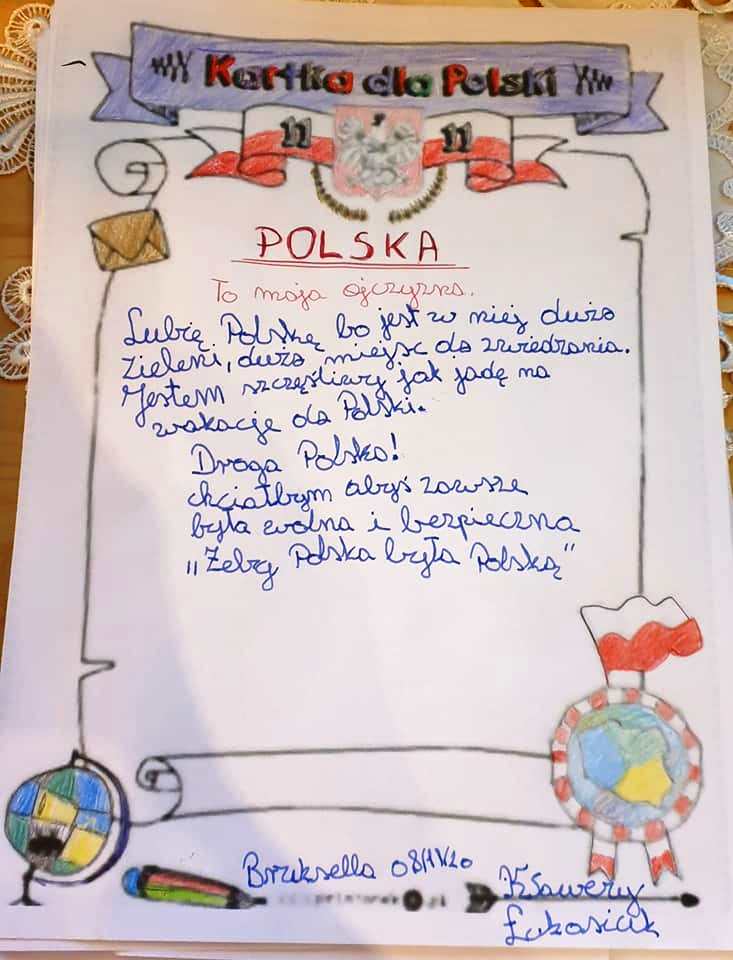 Kartka dla Polski
11 11
POLSKA
To moja ojczyzna.
Lubię Polskę bo jest w niej dużo
zieleni, dużo miejsc do zwiedzania.
Jestem szczęśliwy jak jadę na
wakacje do Polski.
Droga Polsko!
chciałbym abyś zawsze
była wolna i bezpieczna
„Żeby Polska była Polską"
Bruksella 08/11/20
Ksawery
Łukasiuk